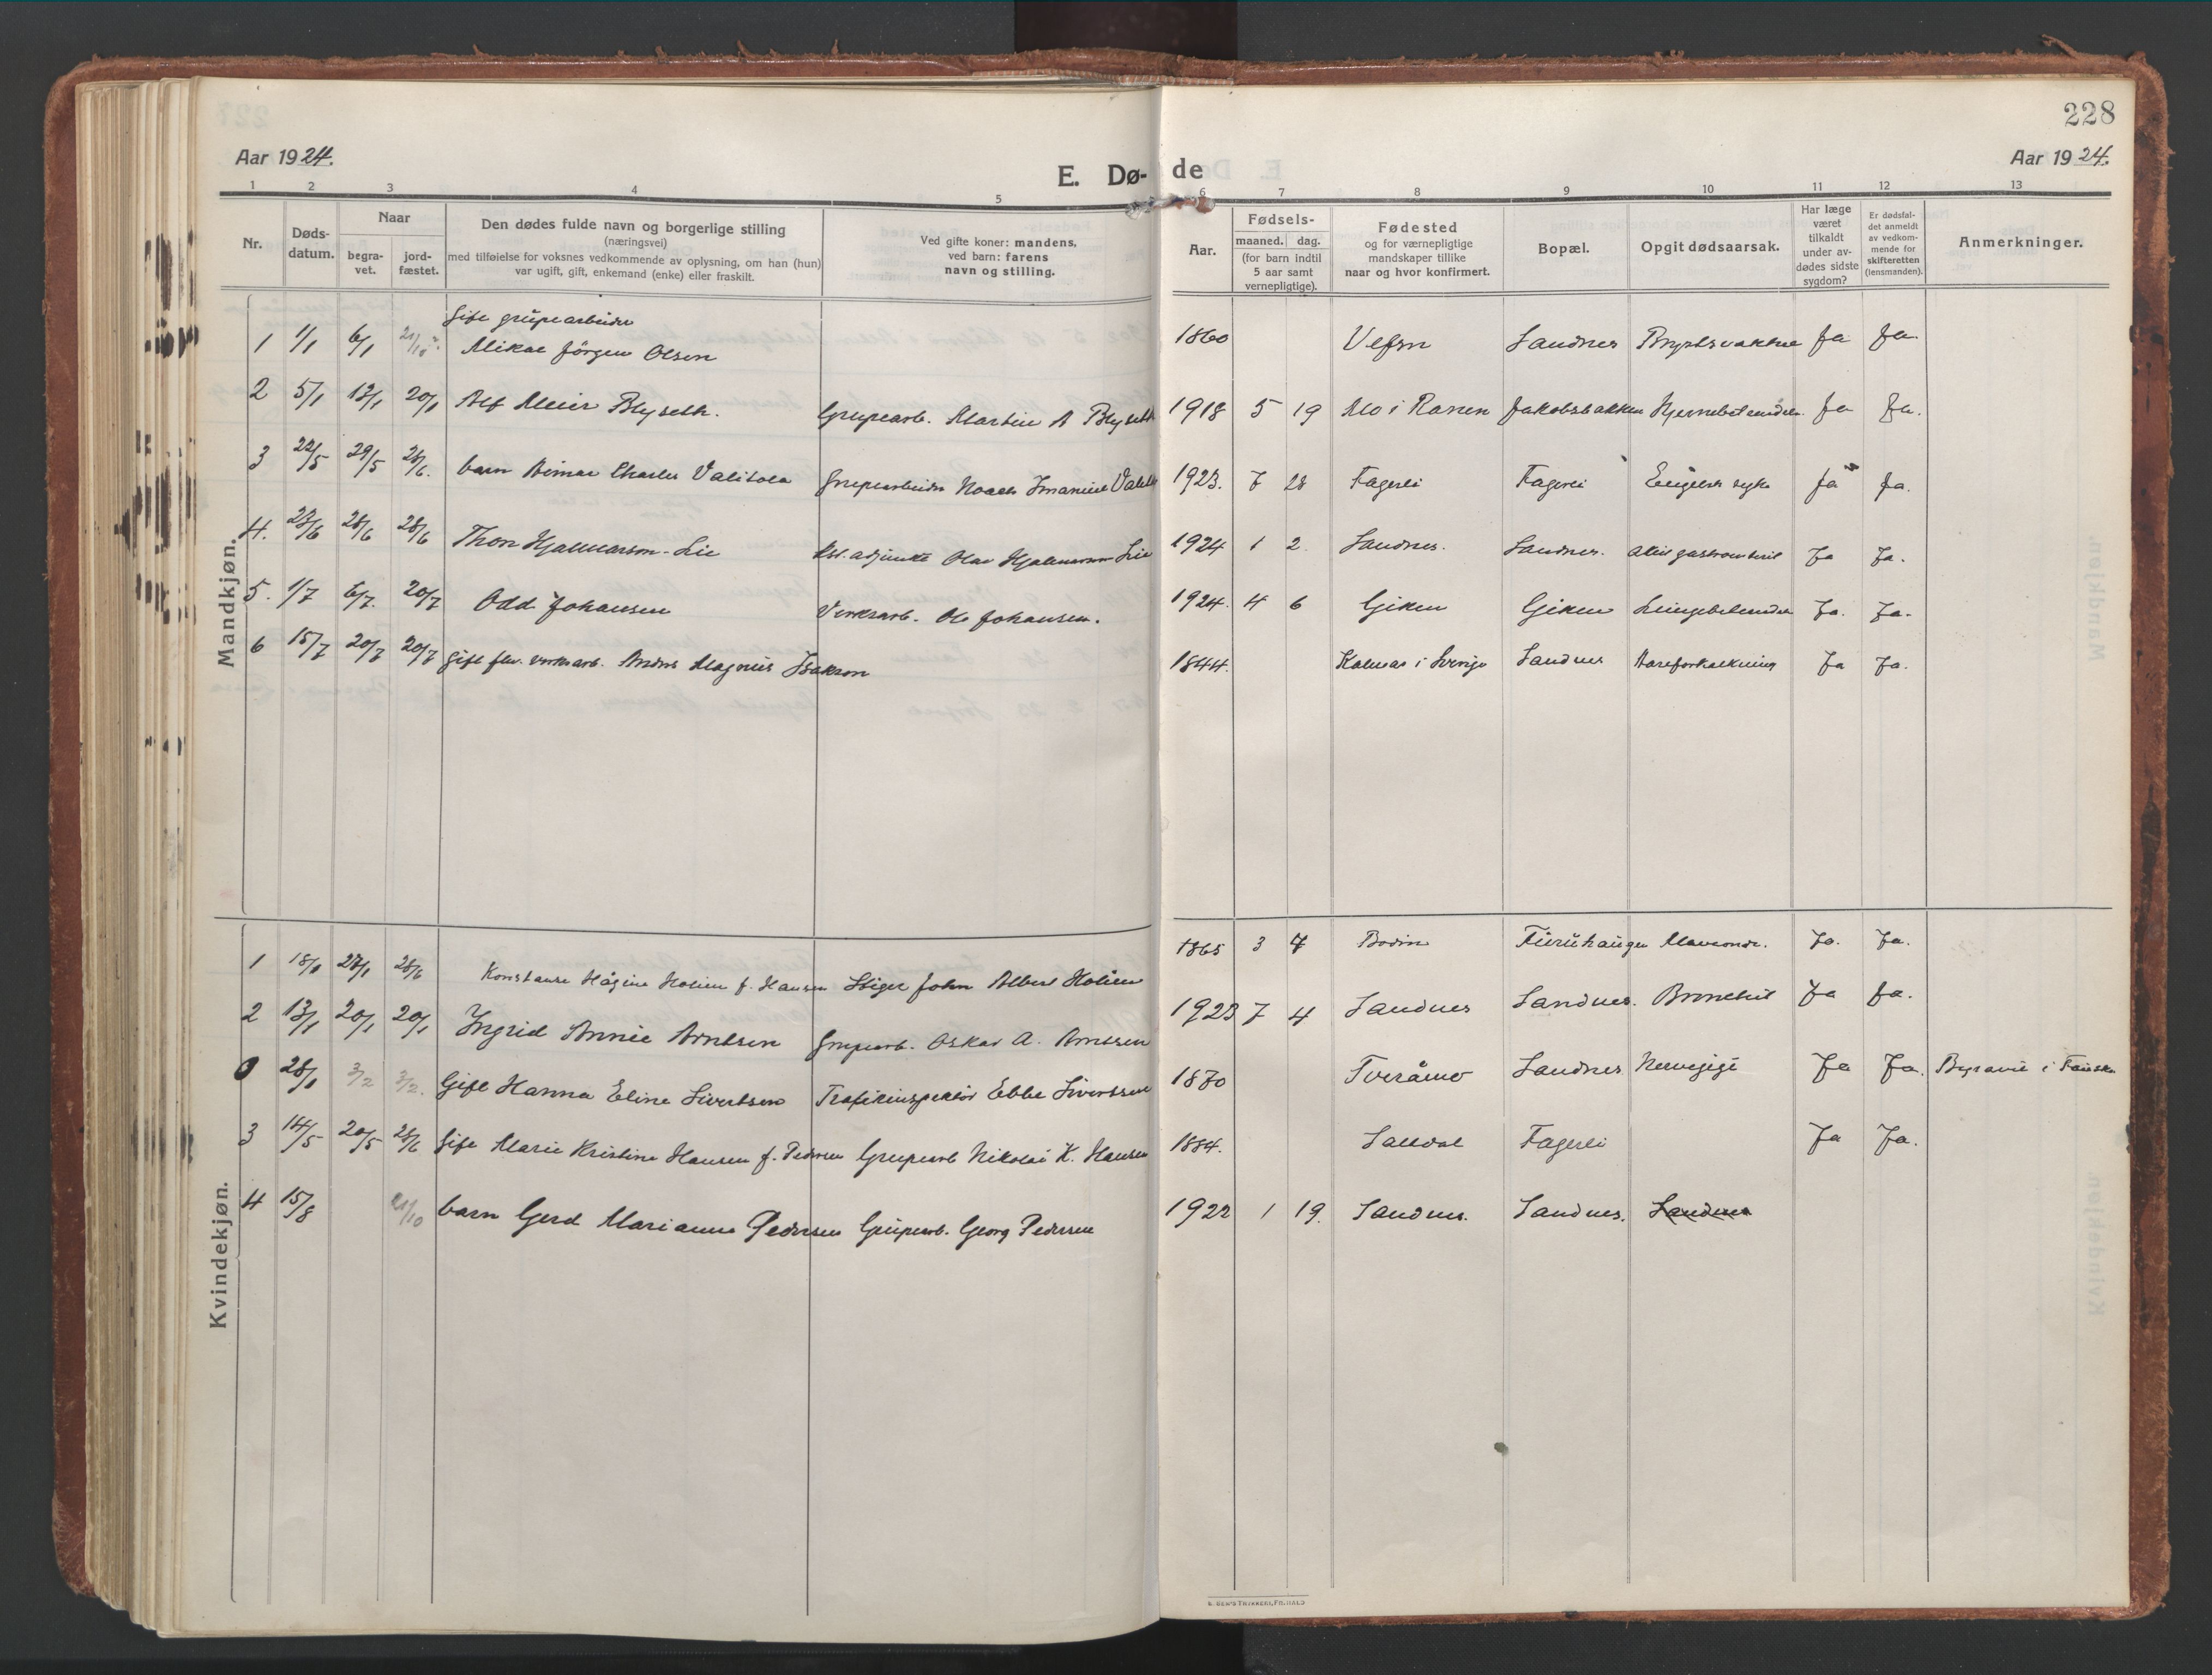 228
Aar 1924.
E. Dø-de
Aar 1924.
1 2 3 4 5 6 7 8 9 10 11 12 13
Nr.
Døds-
datum.
Naar
begra-
vet.
jord-
fæstet.
Den dødes fulde navn og borgerlige stilling
(næringsvei)
med tilføielse for voksnes vedkommende av oplysning, om han (hun)
var ugift, gift, enkemand (enke) eller fraskilt.
Ved gifte koner: mandens,
ved barn: farens
navn og stilling.
Aar.
Fødsels-
maaned. dag.
(for barn indtil
5 aar samt
vernepligtige).
Fødested
og for værnepligtige
mandskaper tillike
naar og hvor konfirmert.
Bopæl.
Opgit dødsaarsak.
Har læge
været
tilkaldt
under av-
dødes sidste
sygdom?
Er dødsfal-
det anmeldt
av vedkom-
mende for
skifteretten
(lensmanden).
Anmerkninger.
Mandkjøn.
Gift grupearbeider
1 1/1 6/1 Mikal Jörgen Olsen 1860 Vefsn Sandnes Ja Ja
2 5/1 13/1 20/1 Alf Meier Blyseth. Grupearb. Martin A Blyseth 1918 5 19 Mo i Ranen Jakobsbakken Ja Ja.
3 22/5 29/5 28/6. barn Charles Valitola Grupearbeider 1923. 7 28 Fagerli Fagerli Engelsk syke Ja Ja.
4. 23/6 28/6 28/6 Thor Hjalmarson-Lie adjunkt Olav Hjalmarson Lie 1924 1 2. Sandnes. Sandnes. Ja Ja.
5. 1/7 6/7. 20/7 Odd Johansen Verksarb. Ole Johansen. 1924. 4 6 Giken Giken Lungebetendelse Ja. Ja.
6 15/7 20/7 20/7 gift fhv. verksarb. Anders Magnus Isakson 1844. Kalmar i Sverige Sandnes Aareforkalkning Ja Ja.
Kvindekjøn.
1 18/1 27/1 28/6 Konstanse Hågine Holien f. Hansen Stiger John Albert Holien 1865 3 7 Bodin Furuhaugen Ja. Ja.
2 13/1 20/1 20/1 Ingrid Annie Arntsen Grupearb. Oskar A. Arntssen 1923 7 4 Sandnes Sandnes. Bronchit Ja Ja.
0 28/1 3/2 3/2. Gift Hanna Eline Sivertsen Trafikinspektör Ebbe Sivertssen 1870 Tveråmo Sandnes Ja Ja. i Fauske
3 14/5 20/5 28/6 Gift Marie Kristine Hansen f. Pedersen Grupearb Nikolai K. Hansen 1884. Saltdal Fagerli Ja Ja.
4 15/8 21/10 barn Gerd Marianne Pedersen Grupearb. Georg Pedersen 1922 1 19. Sandnes. Sandnes. Sandnes